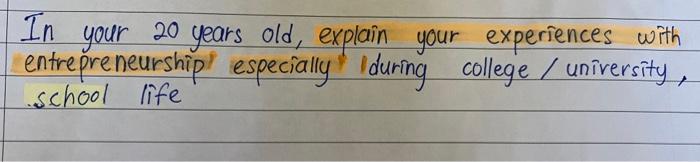 In your 20 years old, explain your experiences with
entrepreneurship especially during college / university,
school life